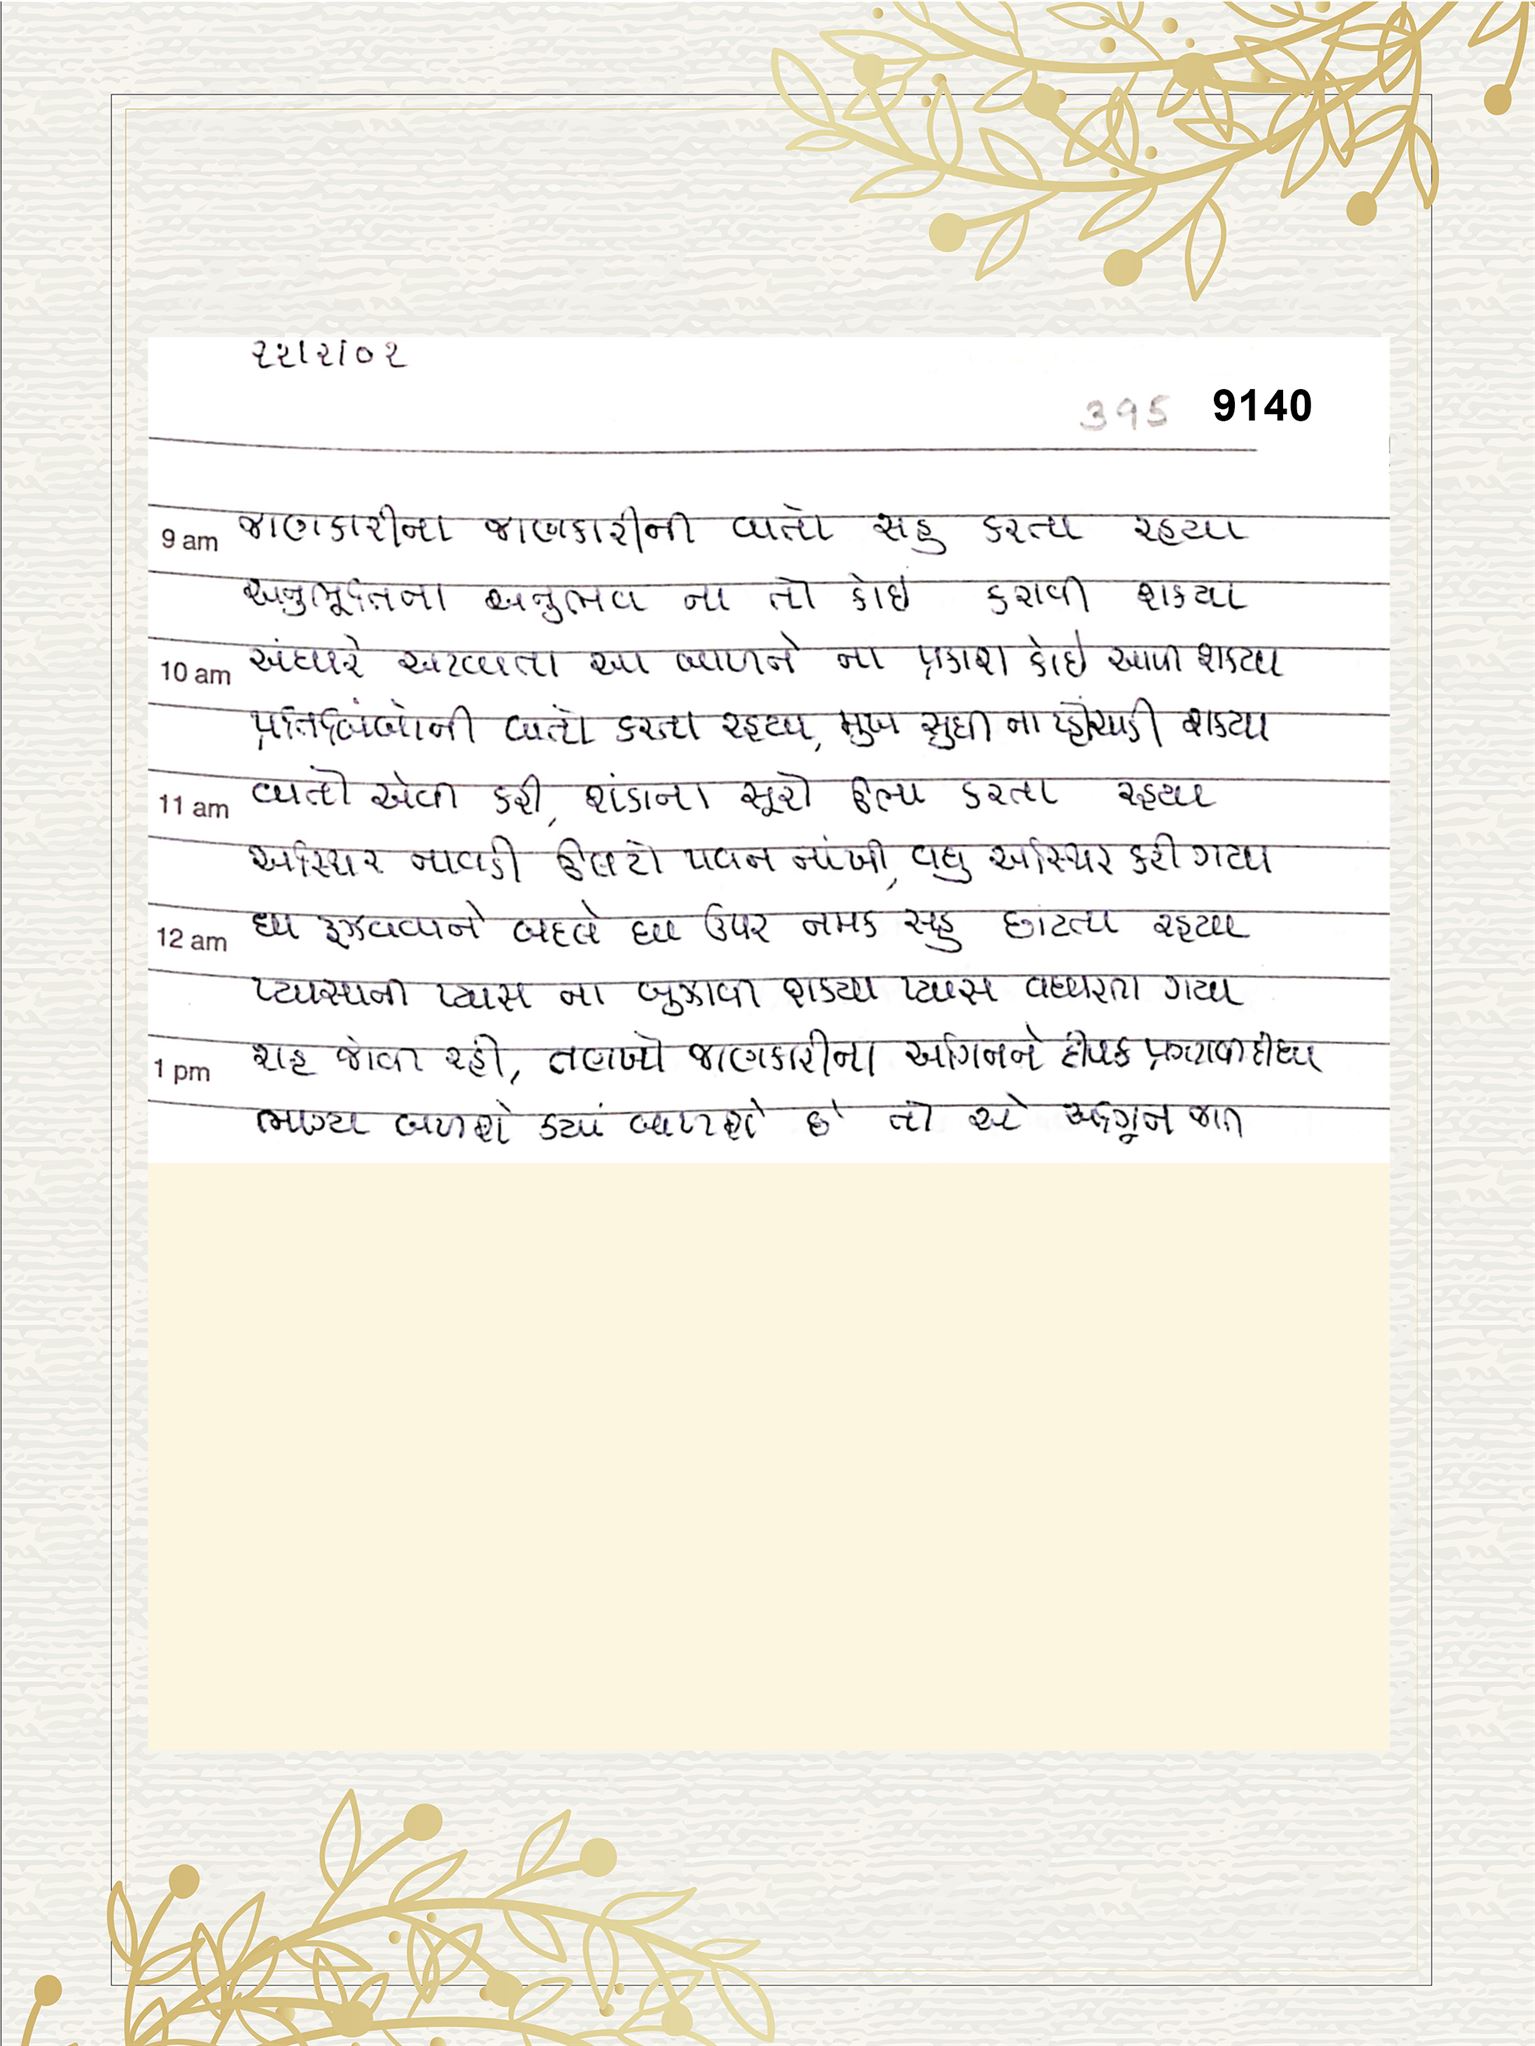 ૨૨।૨।૦૨
395 9140
9 am જાણકારીના જાણકારીની વાતો સહુ કરતા રહ્યા
અનુભૂતિના અનુભવ ના તો કોઈ કરાવી શક્યા
10 am અંધારે અટવાતા આ બાળને ના પ્રકાશ કોઈ આપી શક્યા
પ્રતિબિંબોની વાતો કરતા રહ્યા, મુખ સુધી ના પ્હોંચાડી શક્યા
11 am વાતો એવી કરી, શંકાના સૂરો ઊભા કરતા રહ્યા
અસ્થિર નાવડી ઊલટો પવન નાંખી, વધુ અસ્થિર કરી ગયા
12 am ઘા રૂઝવવાને બદલે ઘા ઉપર નમક સહુ છાંટતા રહ્યા
પ્યાસાની પ્યાસ ના બુઝાવી શક્યા પ્યાસ વધારતા ગયા
1 pm રાહ જોવી રહી, તણખો જાણકારીના અગિનને દીપક પ્રગટાવી દીધા
ભાગ્ય બાળશે ક્યાં બાળશે છે તો એ જાત